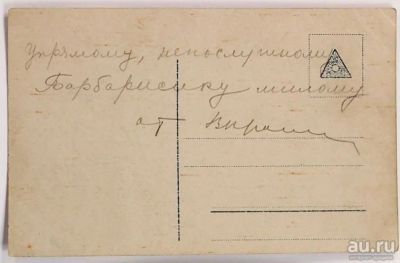 Упрямому, непослушному
Барбарисику милому
от
au.ru